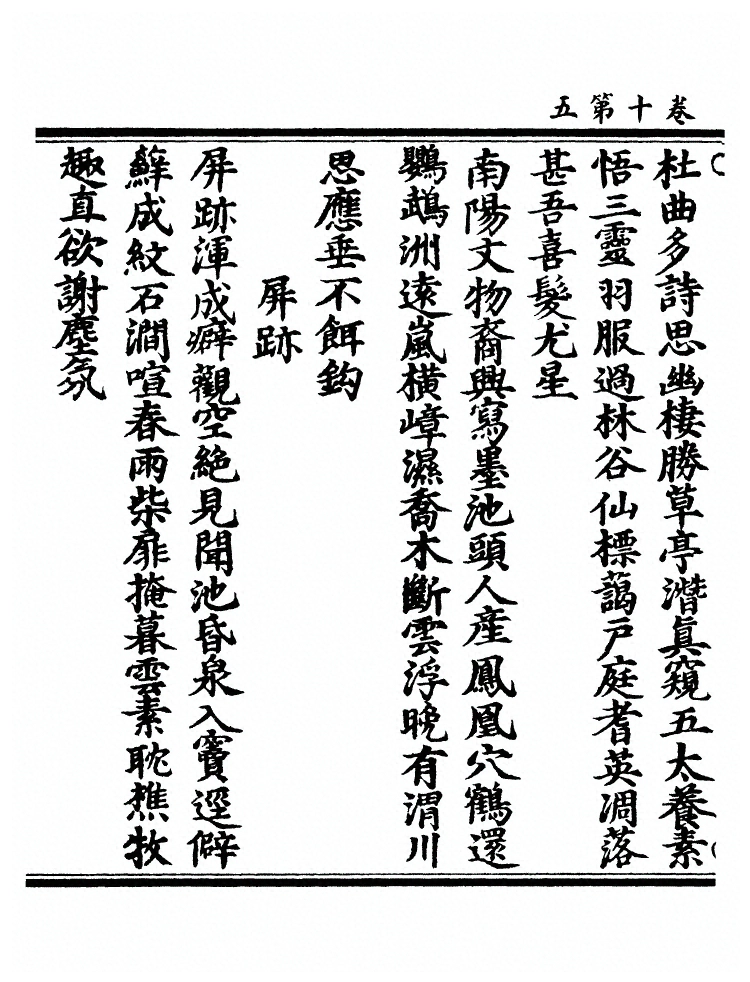 卷十第五
杜曲多詩思幽棲勝草亭潛眞窺五太養素
悟三靈羽服過林谷仙標藹戶庭耆英凋落
甚吾喜髮尤星
南陽文物裔興寫墨池頭人産鳳凰穴鶴還
鸚鵡洲遠嵐橫嶂濕喬木斷雲浮晚有渭川
思應垂不餌鈎
屏跡
屏跡渾成癖觀空絶見聞池昏泉入竇逕僻
蘚成紋石澗喧春雨柴扉掩暮雲素耽樵牧
趣直欲謝塵氛